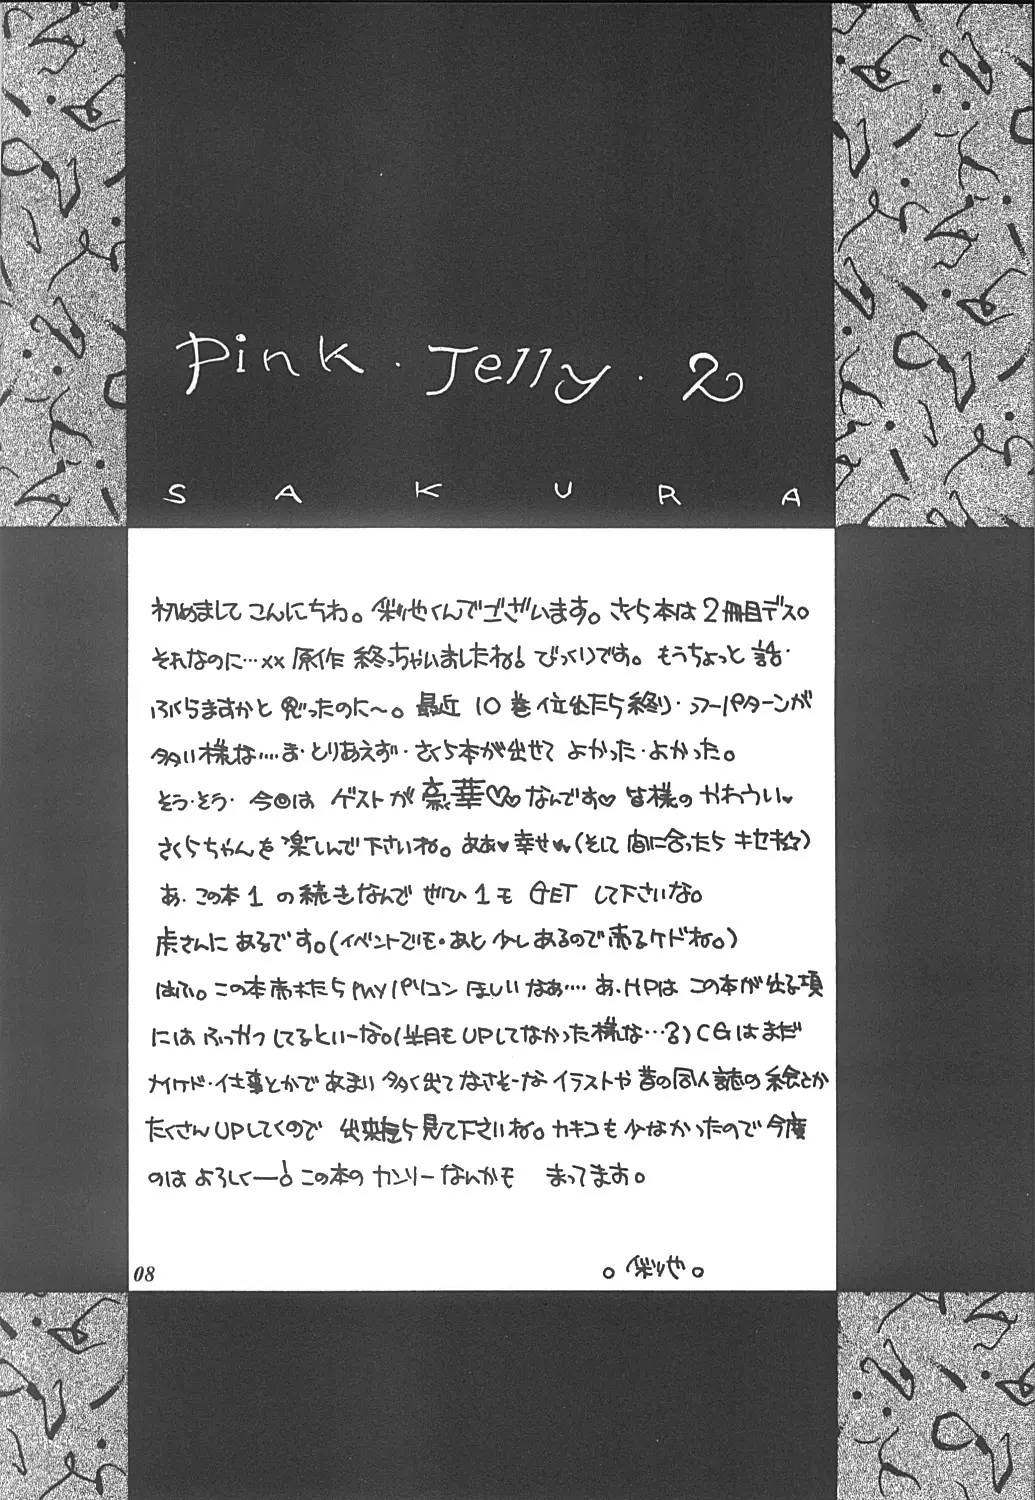 Pink・Jelly・2
SAKURA
初めまして こんにちわ。 くんでございます。さくら本は2冊目デス。
それなのに…xx 原作 終っちゃいましたね! びっくりです。もうちょっと 話・
ふくらますかと 思ったのに〜。最近 10巻位出たら終り・ってパターンが
多い様な…. ま・とりあえず・さくら本が出せて よかった・よかった。
そう・そう・今回は ゲストが豪華♡なんです♡皆様の かわうい♥
さくらちゃんを 楽しんで下さいね。ああ♥幸せ♥(そして間に合ったら キセキ☆)
あ・この本1 の続きなんで ぜひ1も GET して下さいな。
虎さんに あるです。(イベントでも・あと少しあるので売るケドね。)
はふ。この本売れたら Myパソコン ほしいなぁ…. あ・HPは この本が出る頃
には ふっかつ してるといーな。(半月も UPしてなかった様な…) CGはまだ
ナイケド・仕事とかで あまり 多く出てなさそーな イラストや 昔の同人誌の絵とか
たくさんUPしてくので 出来たら見て下さいね。カキコも少なかったので今度
のは よろしくー! この本の カンソーなんかも まってます。
08